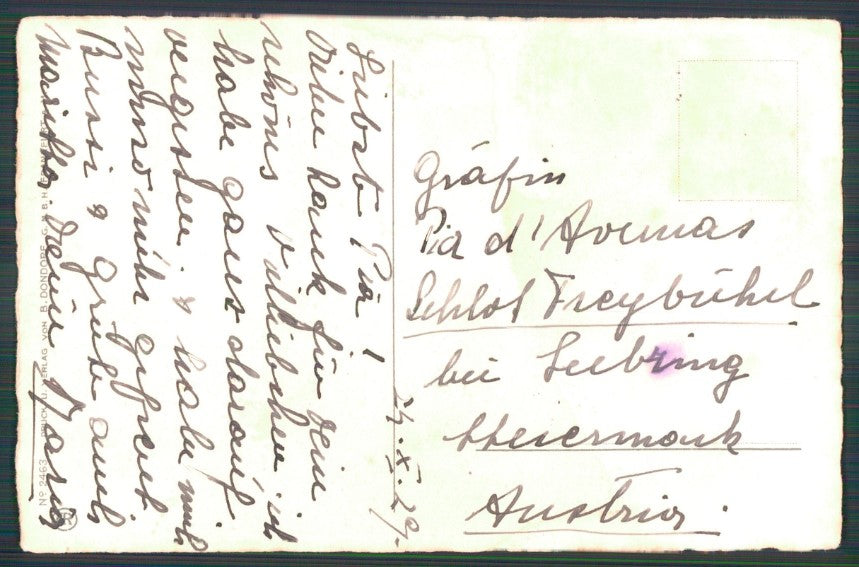 Liebste Pia!
Vielen Dank für Dein
schönes Vielliebchen ich
habe ganz darauf
vergessen. & habe mich
umso mehr gefreut
Bussi & Grüße auch
Mariska Deine Maria
24.X.29.
Gräfin
Pia d'Avernas
Schloß Freybühel
bei Leebring
Steiermark
Austria.
No 2463 DRUCK U. VERLAG VON B. DONDORF, G.M.B.H.